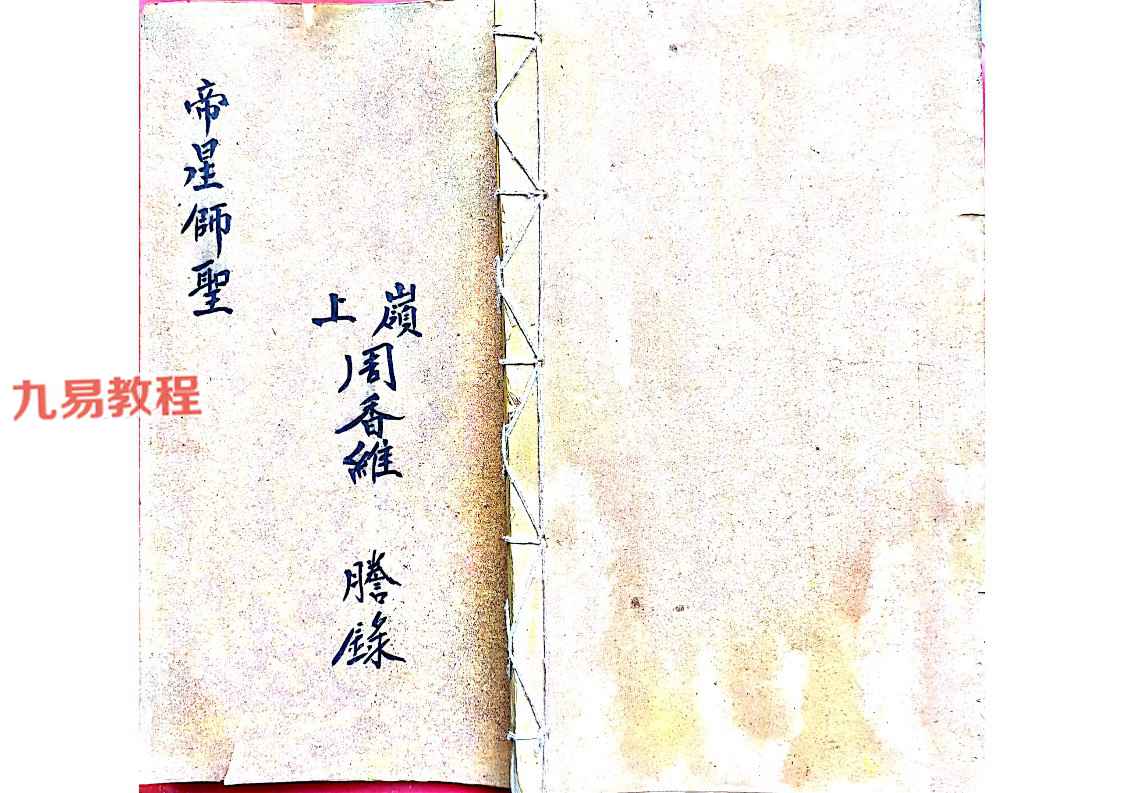 嶺上
周香維 謄錄
帝星師聖
九易教程